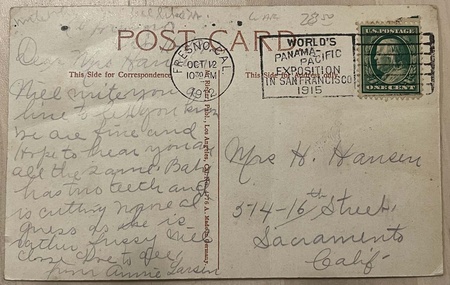 28.50
POST CARD
Dear Mrs Hansen
This Side for Correspondence
This Side for Address only
FRESNO, CAL.
OCT 12
10 AM
1912
WORLD'S
PANAMA-PACIFIC
EXPOSITION
IN SAN FRANCISCO
1915
U.S. POSTAGE
ONE CENT
Will write you
line to tell you
we are fine and
Hope to hear you are
all the same. Baby
has two teeth and
is cutting more I
guess as she is
rather fussy. Will
close Love to all,
from Annie Larsen
Los Angeles, Made in Germany.
Mrs H. Hansen
514-16th Street,
Sacramento
Calif